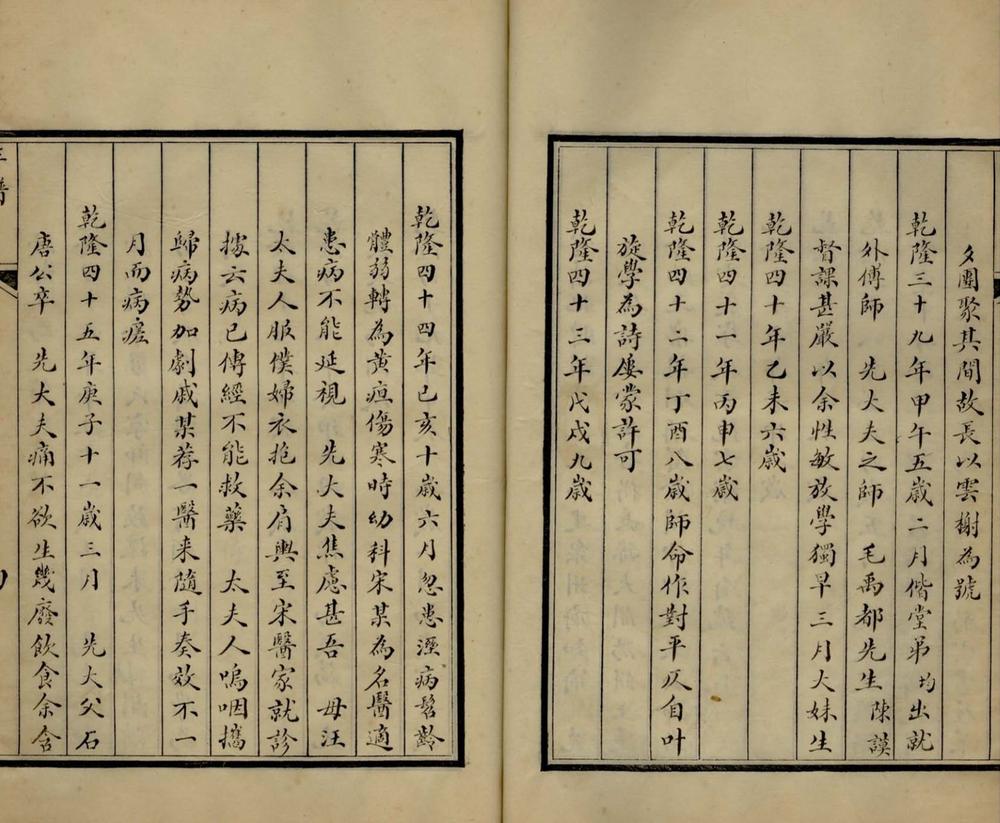 夕團聚其間故長以雲榭為號
乾隆三十九年甲午五歲二月偕堂弟均出就
外傅師　先大夫之師　毛禹都先生陳謨
督課甚嚴以余性敏放學獨早三月大妹生
乾隆四十年乙未六歲
乾隆四十一年丙申七歲
乾隆四十二年丁酉八歲師命作對平仄自叶
旋學為詩僂蒙許可
乾隆四十三年戊戌九歲
乾隆四十四年己亥十歲六月忽患溼病髫齡
體弱轉為黃疸傷寒時幼科宋某為名醫適
患病不能延視　先大夫焦慮甚吾　母汪
太夫人服僕婦衣抱余肩輿至宋醫家就診
據云病已傳經不能救藥　太夫人嗚咽攜
歸病勢加劇戚某荐一醫来隨手奏效不一
月而病痊
乾隆四十五年庚子十一歲三月　先大父石
唐公卒　先大夫痛不欲生幾廢飲食余含